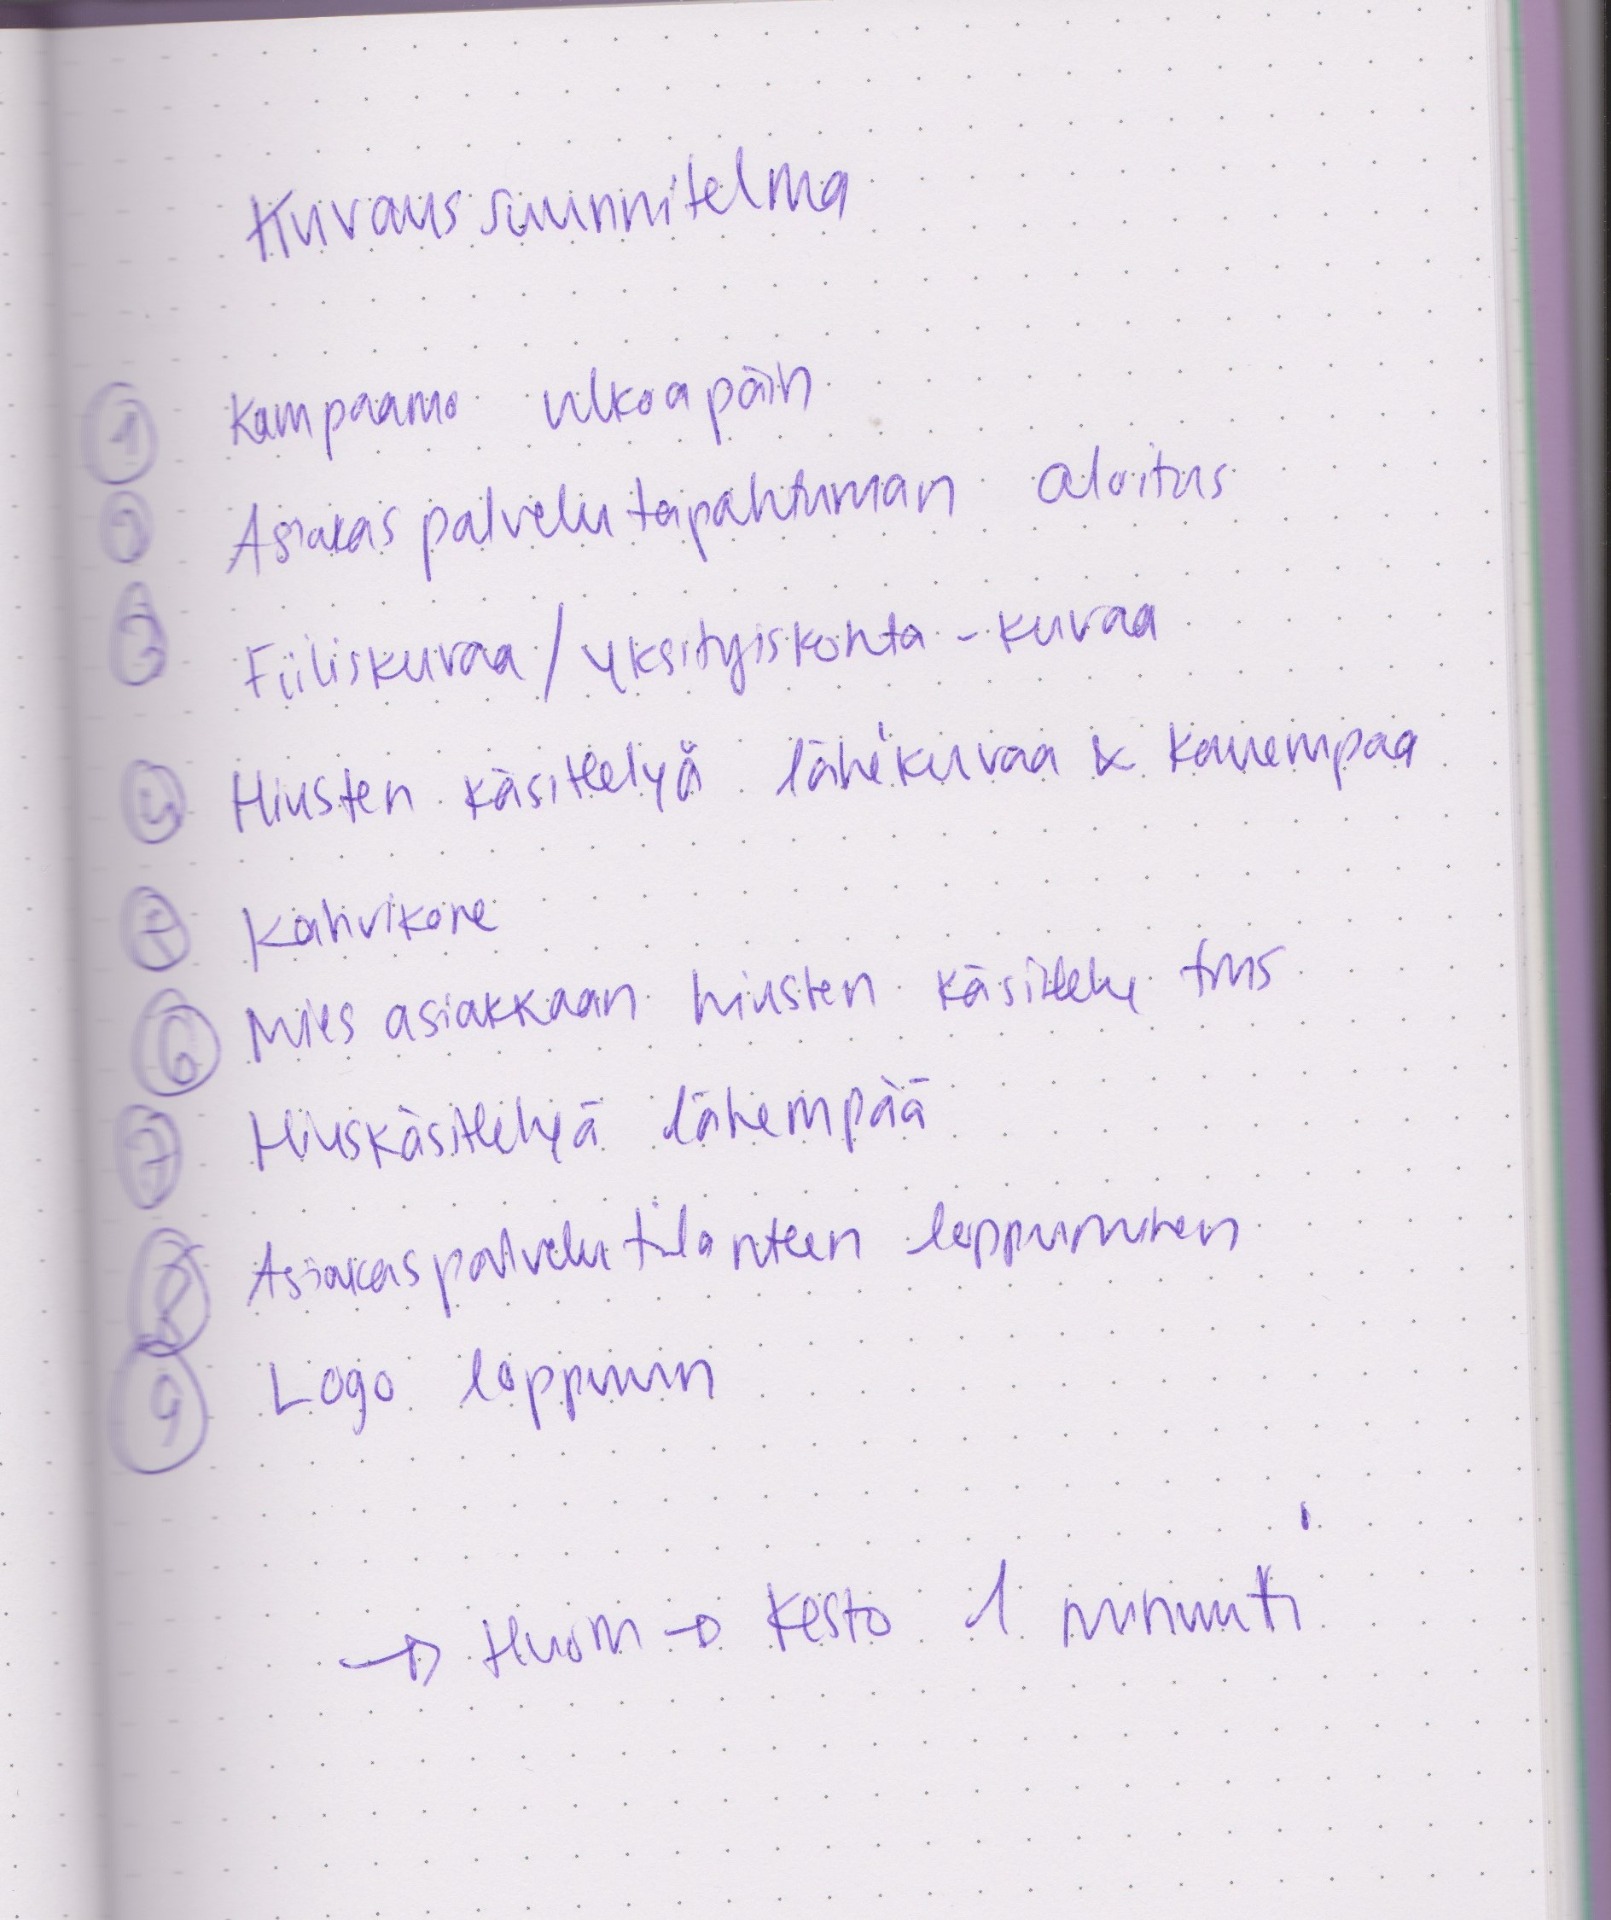 Kuvaussuunnitelma
1 Kampaamo ulkoapäin
2 Asiakaspalvelutapahtuman aloitus
3 Fiiliskuvaa / yksityiskohta-kuvaa
4 Hiusten käsittelyä lähikuvaa & kauempaa
Kahvikone
6 Mies asiakkaan hiusten käsittely tms
7 Hiuskäsittelyä lähempää
8 Asiakaspalvelutilanteen loppuminen
9 Logo loppuun
→ Huom → Kesto 1 minuutti